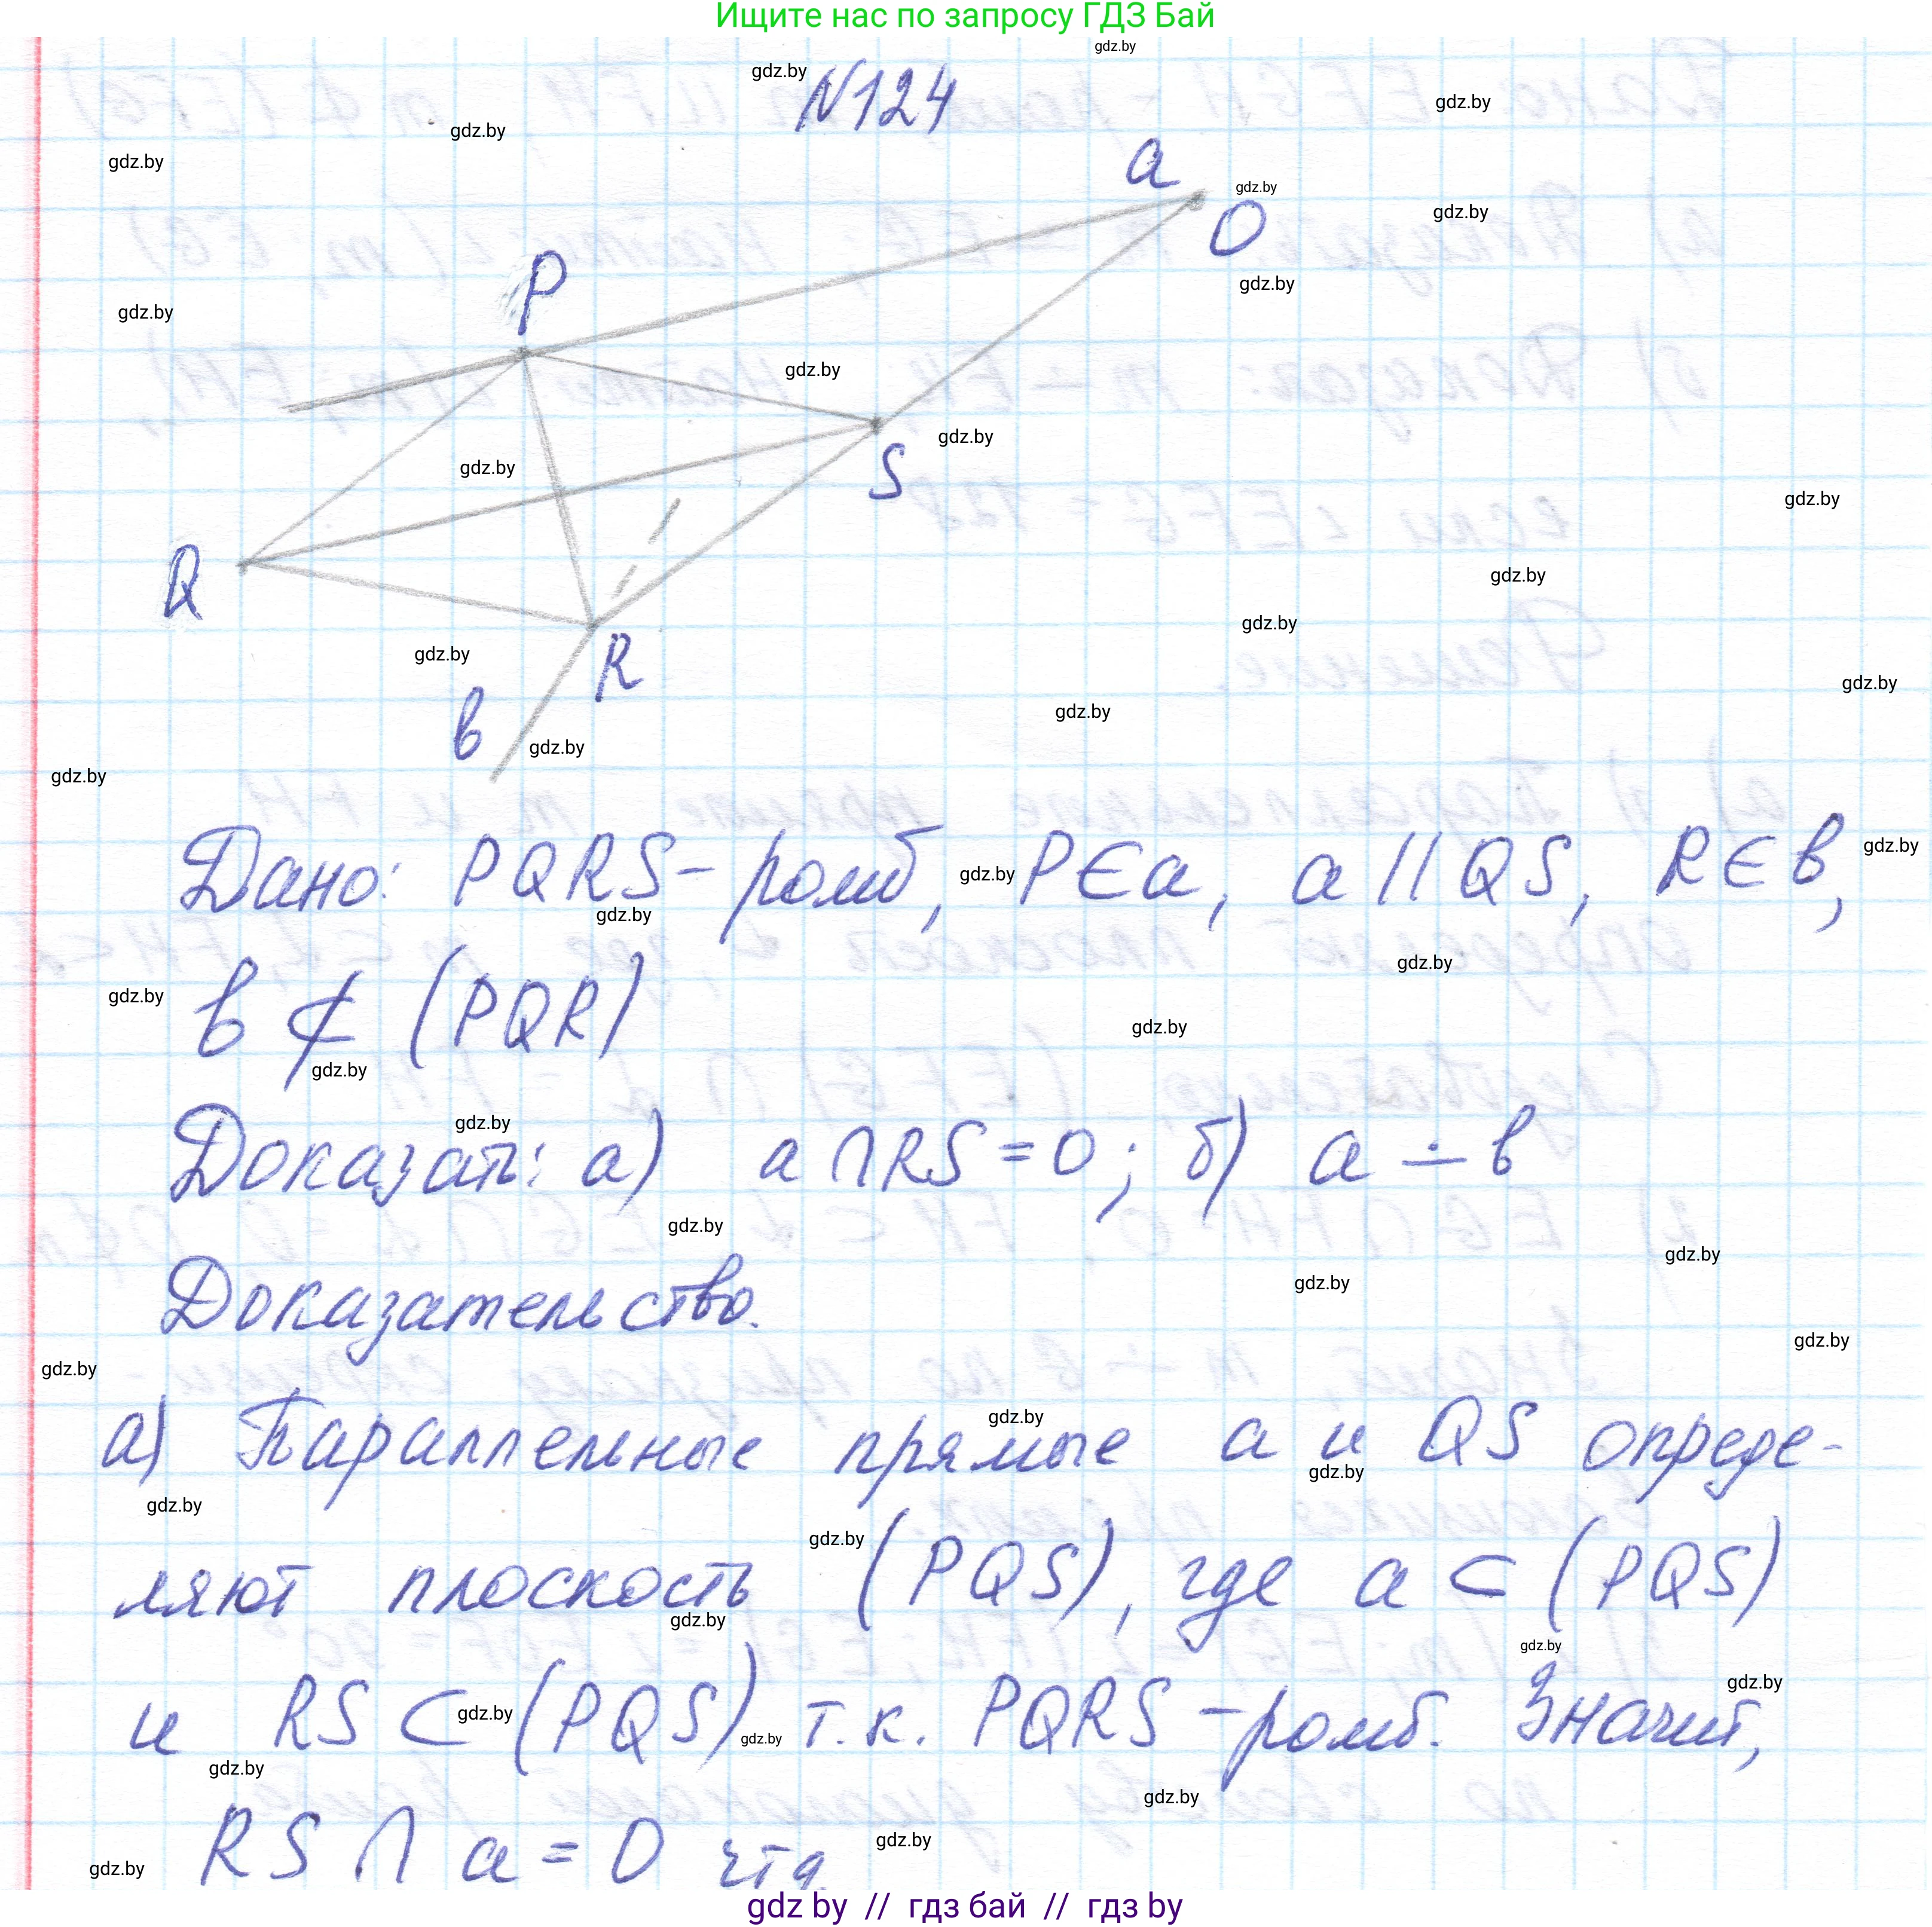 Ищите нас по запросу ГДЗ Бай
N124
a
O
P
S
Q
R
в
Дано: PQRS - ромб, P∈a, a || QS, R∈в,
в ⊄ (PQR)
Доказать: а) a ∩ RS = O; б) a ∸ в
Доказательство.
а) Параллельные прямые a и QS опреде-
ляют плоскость (PQS), где a ⊂ (PQS)
и RS ⊂ (PQS) т.к. PQRS - ромб. Значит,
RS ∩ a = O чтд.
gdz by // гдз бай // гдз by